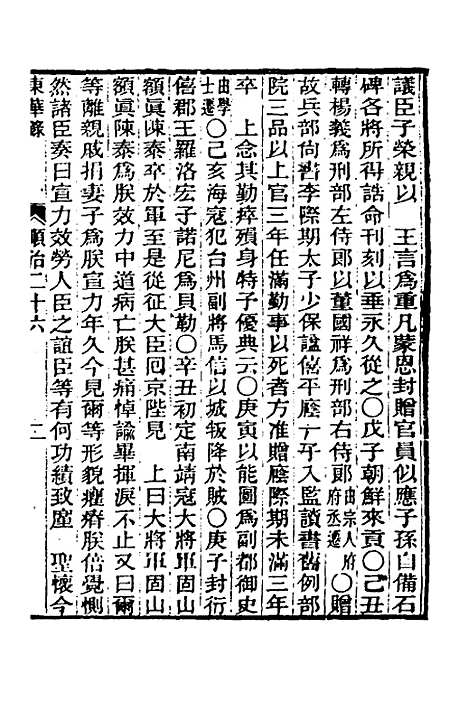 議臣子榮親以　王言爲重凡蒙恩封贈官員似應子孫自備石
碑各將所得誥命刊刻以垂永久從之〇戊子朝鮮來貢〇己丑
轉楊義爲刑部左侍郎以董國祥爲刑部右侍郎由宗人府府丞遷〇贈
故兵部尚書李際期太子少保諡僖平廕一子入監讀書舊例部
院三品以上官三年任滿勤事以死者方准贈廕際期未滿三年
卒　上念其勤瘁殞身特予優典云〇庚寅以能圖爲副都御史
由學士遷〇己亥海寇犯台州副將馬信以城叛降於賊〇庚子封衍
僖郡王羅洛宏子諾尼爲貝勒〇辛丑初定南靖寇大將軍固山
額眞陳泰卒於軍至是從征大臣回京陛見　上曰大將軍固山
額眞陳泰爲朕效力中道病亡朕甚痛悼諭畢揮淚不止又曰爾
等離親戚捐妻子爲朕宣力年久今見爾等形貌癯瘠朕倍覺惻
然諸臣奏曰宣力效勞人臣之誼臣等有何功績致廑　聖懷今
東華錄　順治二十六　二